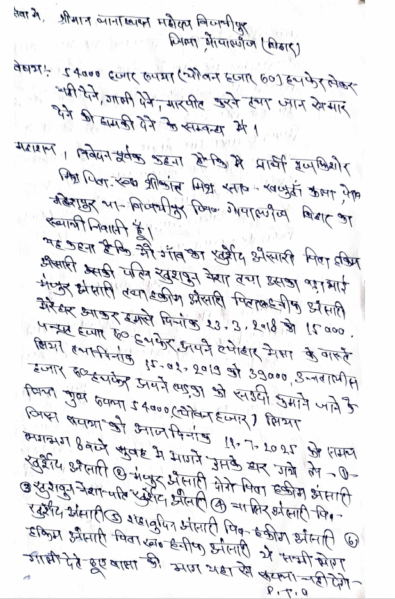 सेवा में, श्रीमान थानाध्यक्ष महोदय विजयीपुर
जिला गोपालगंज (बिहार)
विषय:- 54000 हजार रूपया (चौवन हजार रू०) हथफेर लेकर
नहीं देने, गाली देने, मारपीट करने तथा जान से मार
देने की धमकी देने के सम्बन्ध में।
महाशय, निवेदन पूर्वक कहना है कि मैं प्रार्थी बृजकिशोर
मिश्र पिता- स्व० श्रीकांत मिश्र
थाना- विजयीपुर जिला गोपालगंज बिहार का
स्थायी निवासी हूँ।
यह कहना है कि मेरे गाँव का खुर्शेद अंसारी पिता हकिम
अंसारी उसकी पत्नि खुशबुन नेशा तथा उसका बड़ा भाई
मंजुर अंसारी तथा हकीम अंसारी पिता हनीफ अंसारी
मेरे घर आकर हमसे दिनांक 23.3.2018 को 15000.
पन्द्रह हजार रू० हथफेर अपने के वास्ते
लिया तथा दिनांक 15.02.2019 को 39000, उन्चालीस
हजार रू० हथफेर अपने लड़का को सउदी कमाने जाने के
लिया कुल रूपया 54000 (चौवन हजार) लिया
जिस रूपया को आज दिनांक 11.7.2025 को समय
लगभग 8 बजे सुबह में मांगने उसके घर गये तो -①-
खुर्शेद अंसारी ② मंजुर अंसारी दोनों पिता हकीम अंसारी
③ खुशबुन नेशा पति खुर्शेद अंसारी ④ अंसारी पि०-
खुर्शेद अंसारी ⑤ अंसारी पि०- हकीम अंसारी ⑥
हकिम अंसारी पिता स्व० हनीफ अंसारी ये सभी लोग
गाली देते हुए कहा की भाग यहा से रूपया नही देंगे-
P.T.O